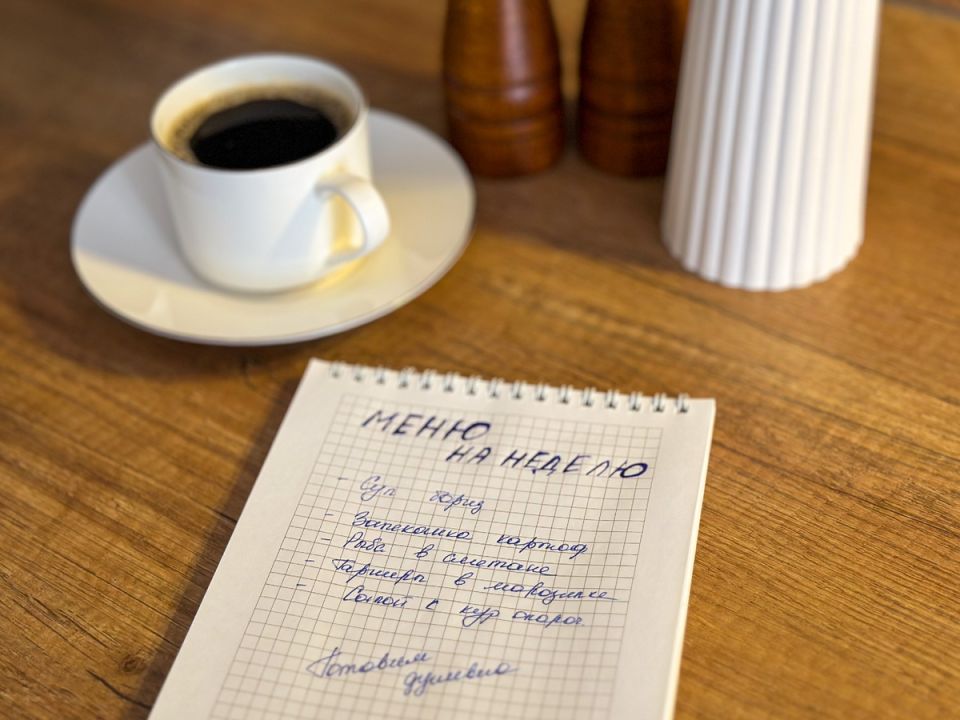 МЕНЮ
НА НЕДЕЛЮ
- Суп
- Запекашко картоф
- Рыба в сметане
- Гарниры в морозилке
- Салат с кур
Готовим
душевно